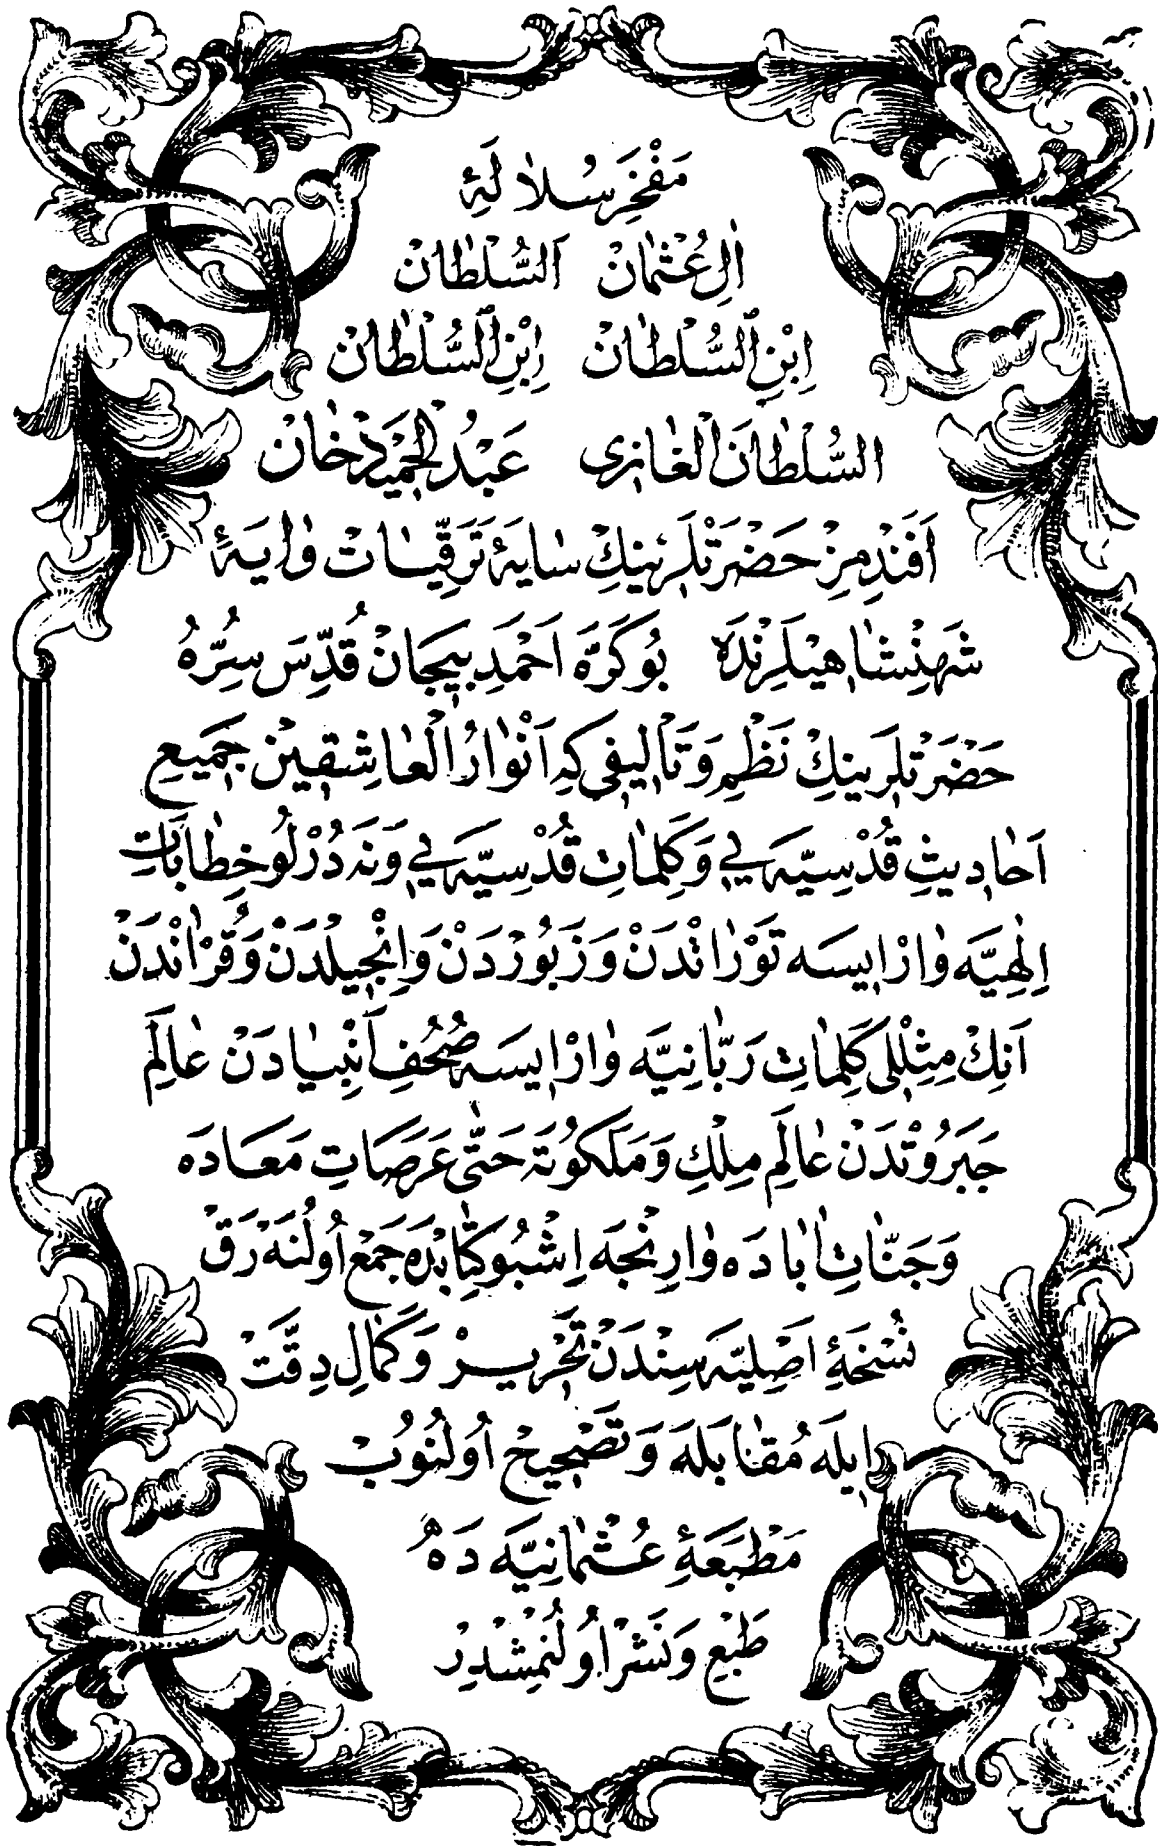 مَفْخَرِ سُلَالَهِٔ
اٰلِ عُثْمَانْ اَلسُّلْطَانْ
اِبْنِ السُّلْطَانْ اِبْنِ السُّلْطَانْ
اَلسُّلْطَانَ الْغَازِى عَبْدُ الْحَمِيدْ خَانْ
اَفَنْدِمِزْ حَضْرَتْلَرِينِكْ سَايَهٔ تَرَقِّيَاتْ وَايَهٔ
شَهَنْشَاهِيلَرِنْدَه بُو كَرَّه اَحْمَدِ بِيجَانْ قُدِّسَ سِرُّهُ
حَضْرَتْلَرِينِكْ نَظْمِ وَ تَأْلِيفِى كِه اَنْوَارُ الْعَاشِقِينْ جَمِيعِ
اَحَادِيثِ قُدْسِيَّه يِى وَكَلِمَاتِ قُدْسِيَّه يِى وَنَه دُرْلُو خِطَابَاتِ
اِلٰهِيَّه وَارْ اِيسَه تَوْرَاتْدَنْ وَزَبُورْدَنْ وَاِنْجِيلْدَنْ وَقُرْاٰنْدَنْ
اَنِكْ مِثِلْلِى كَلِمَاتِ رَبَّانِيَّه وَارْ اِيسَه صُحُفِ اَنْبِيَادَنْ عَالَمِ
جَبَرُوتْدَنْ عَالَمِ مِلْكِ وَمَلَكُوتَه حَتّٰى عَرَصَاتِ مَعَادَه
وَجَنَّاتِ اٰبَادَه وَارِنْجَه اِشْبُو كِتَابْدَه جَمْعْ اُولُنَه رَقْ
نُسْخَهِٔ اَصْلِيَّه سِنْدَنْ تَحْرِيرْ وَكَمَالِ دِقَّتْ
اِيلَه مُقَابَلَه وَتَصْحِيحْ اُولُنُوبْ
مَطْبَعَهِٔ عُثْمَانِيَّه دَه
طَبْعِ وَنَشْرْ اُولُنْمِشْدِرْ